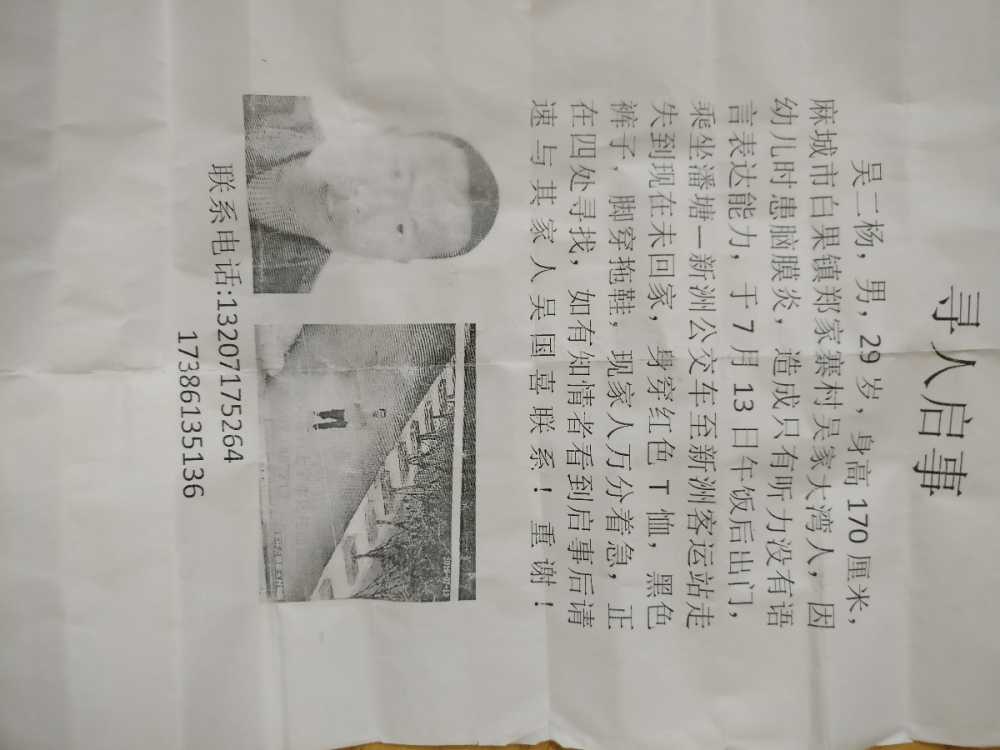 寻人启事
吴二杨，男，29岁，身高170厘米，
麻城市白果镇郑家寨村吴家大湾人，因
幼儿时患脑膜炎，造成只有听力没有语
言表达能力，于7月13日午饭后出门，
乘坐潘塘—新洲公交车至新洲客运站走
失到现在未回家，身穿红色T恤，黑色
裤子，脚穿拖鞋，现家人万分着急，正
在四处寻找，如有知情者看到启事后请
速与其家人吴国喜联系！重谢！
联系电话:13207175264
17386135136